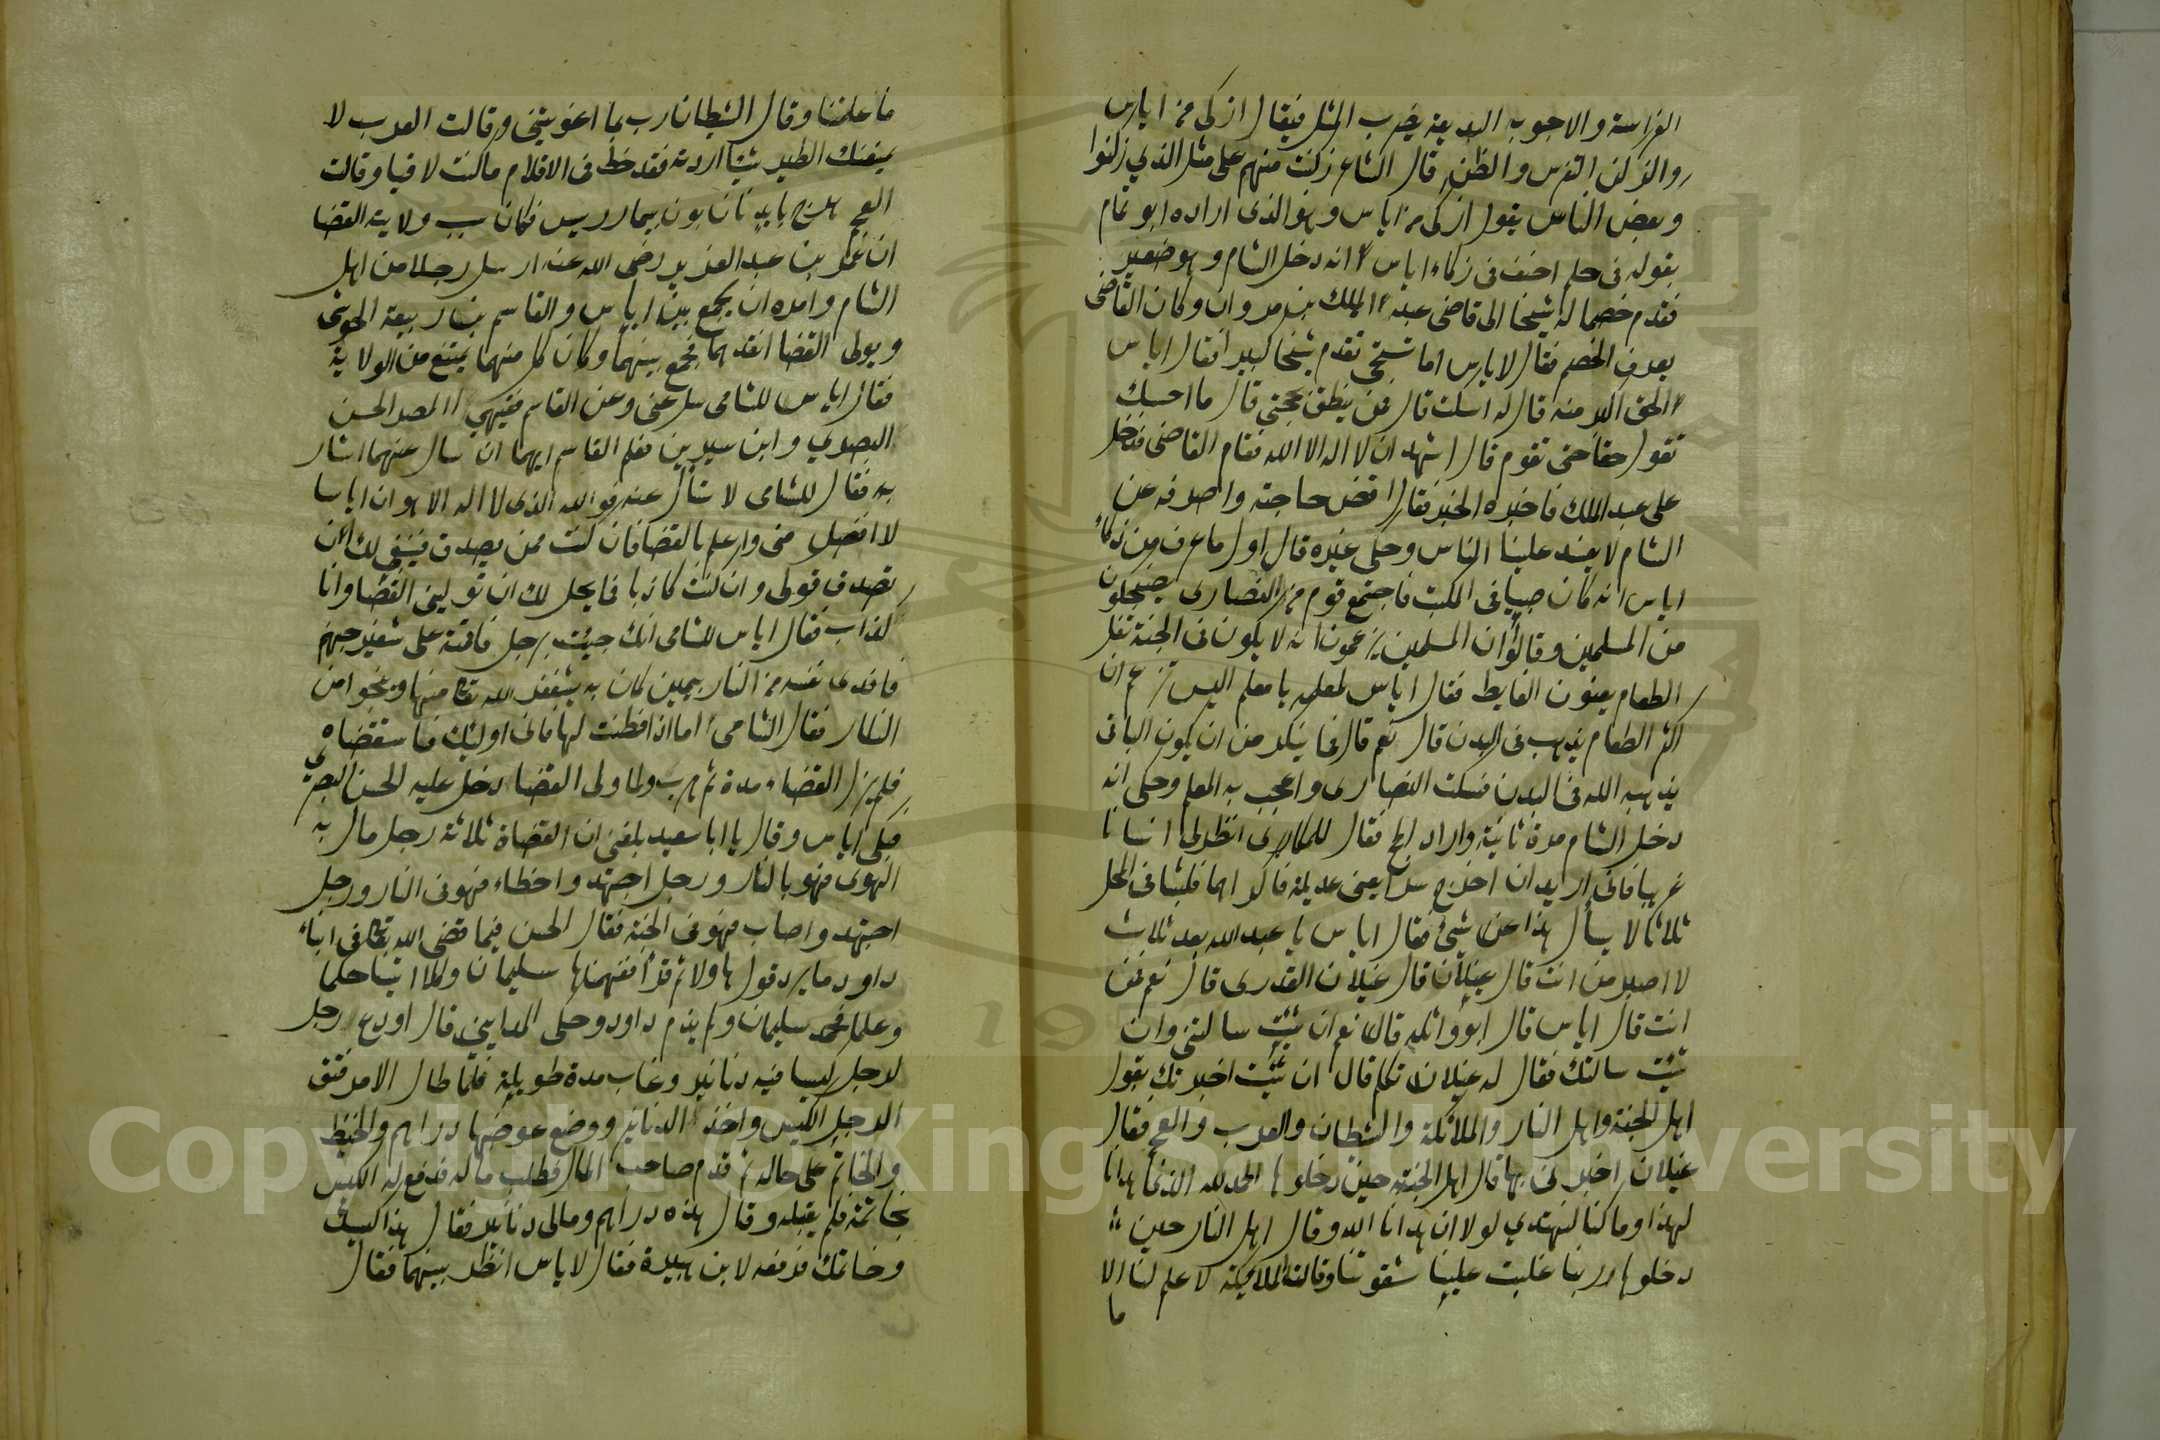 الفراسة والاجوبه البديعة يضرب المثل فيقال ازكى من اياس
والزكن التفرس والظن قال الشاعر زكنت منهم على مثل الذي زكنوا
وبعض الناس يقول ازكى من اياس وهو الذى اراده ابو تمام
بقوله فى حلم احنف فى زكاء اياس انه دخل الشام وهو صغير
فقدم خصما له شيخا الى قاضى عبد الملك بن مروان وكان القاضى
يعرف الخصم فقال لاياس اما تستحى تقدم شيخا كبيرا فقال اياس
الحق اكبر منه قال له اسكت قال فمن ينطق بحجتى قال ما احسبك
تقول حقا حتى تقوم قال اشهد ان لا اله الا الله فقام القاضى فدخل
على عبد الملك فاخبره الخبر فقال اقض حاجته واصرفه عن
الشام لا يفسد علينا الناس وحكى غيره قال اول ما عرف من زكاء
اياس انه كان صبيا فى المكتب فاجتمع قوم من النصارى يضحكون
من المسلمين وقالوا ان المسلمين يزعمون انه لا يكون فى الجنة ثفل
الطعام يعنون الغايط فقال اياس لمعلمه يا معلم اليس تزعم ان
اكثر الطعام يذهب فى البدن قال نعم قال فما ينكر من ان يكون الباقى
يذهبه الله فى البدن فسكت النصارى واعجب به المعلم وحكى انه
دخل الشام مرة ثانية واراد الحج فقال للمكارى انظر لى انسانا
غريبا فانى اريد ان اخرج سرا يعنى عديله فاكراهما فلبثا فى المحمل
ثلاثا لا يسأل هذا عن شئ فقال اياس يا عبد الله بعد ثلاث
لا اصبر من انت قال غيلان قال غيلان القدرى قال نعم فمن
انت قال اياس قال ابو واثلة قال نعم ان شئت سالتنى وان
شئت سالتك فقال له غيلان تكلم قال ان شئت اخبرتك بقول
اهل الجنة واهل النار والملائكة والشيطان والعرب والعجم فقال
غيلان اخبرنى بها قال اهل الجنة حين دخلوها الحمد لله الذى هدانا
لهذا وما كنا لنهتدي لولا ان هدانا الله وقال اهل النار حين
دخلوها ربنا غلبت علينا شقوتنا وقالت الملائكة لا علم لنا الا
ما
ما علمتنا وقال الشيطان رب بما اغويتنى وقالت العرب لا
يمنعنك الطير شيئا اردته فقد خط فى الاقلام ما كنت لاقيا وقالت
العجم فكان سبب ولاية القضا
ان عمر بن عبد العزيز رضى الله عنه ارسل رجلا من اهل
الشام وامره ان يجمع بين اياس والقاسم بن ربيعة الجوشنى
ويولى القضا انفذهما فجمع بينهما وكان كل منهما يمتنع من الولاية
فقال اياس للشامى سل عنى وعن القاسم فقيهي المصر الحسن
البصري وابن سيرين فعلم القاسم ايهما ان سال عنهما اشار
به فقال للشامى لا تسأل عنه فوالله الذى لا اله الا هو ان اياسا
لا افضل منى واعلم بالقضا فان كنت ممن يصدق فينبغى لك ان
تصدق قولى وان كنت كاذبا فما يحل لك ان تولينى القضا وانا
كذاب فقال اياس للشامى انك جيئت برجل فاقمته على شفير جهنم
فافتدى نفسه من النار بيمين كاذبه يستغفر الله تعالى منها وينجو من
النار فقال الشامى اما اذا فطنت لها فانى اوليك فاستقضاه
فلم يزل القضاء مدة ثم هرب ولما ولى القضا دخل عليه الحسن البصري
فبكى اياس وقال يا ابا سعيد بلغنى ان القضاة ثلاثة رجل مال به
الهوى فهو بالنار ورجل اجتهد واخطاء فهو فى النار ورجل
اجتهد واصاب فهو فى الجنة فقال الحسن فيما قضى الله تعالى فى انباء
داود ما يرد قول هاولا ثم قرأ ففهمناها سليمان وكلا اتينا حكما
وعلما فحمد سليمان ولم يذم داود وحكى المدايني قال اودع رجل
لرجل كيسا فيه دنانير وغاب مدة طويلة فلما طال الامر فتق
الرجل الكيس واخذ الدنانير ووضع عوضها دراهم والخيط
والخاتم على حاله ثم قدم صاحب المال فطلب ماله فدفع له الكيس
بخاتمه فلم يقبله وقال هذه دراهم ومالى دنانير فقال هذا كيسك
وخاتمك فرفعه لابن هبيرة فقال لاياس انظر بينهما فقال
Copyright © King Saud University